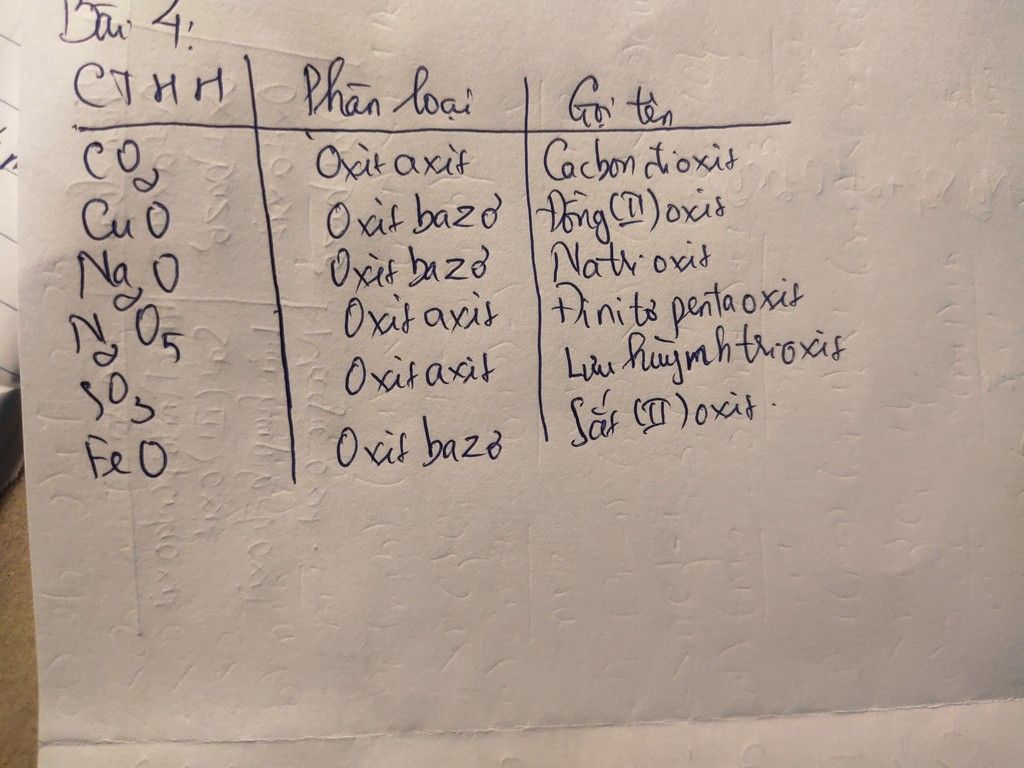 Bài 4:
CTHH Phân loại Gọi tên
CO2 Oxit axit Cacbon đioxit
CuO Oxit bazơ Đồng (II) oxit
Na2O Oxit bazơ Natri oxit
N2O5 Oxit axit Đinitơ pentaoxit
SO3 Oxit axit Lưu huỳnh trioxit
FeO Oxit bazơ Sắt (II) oxit.